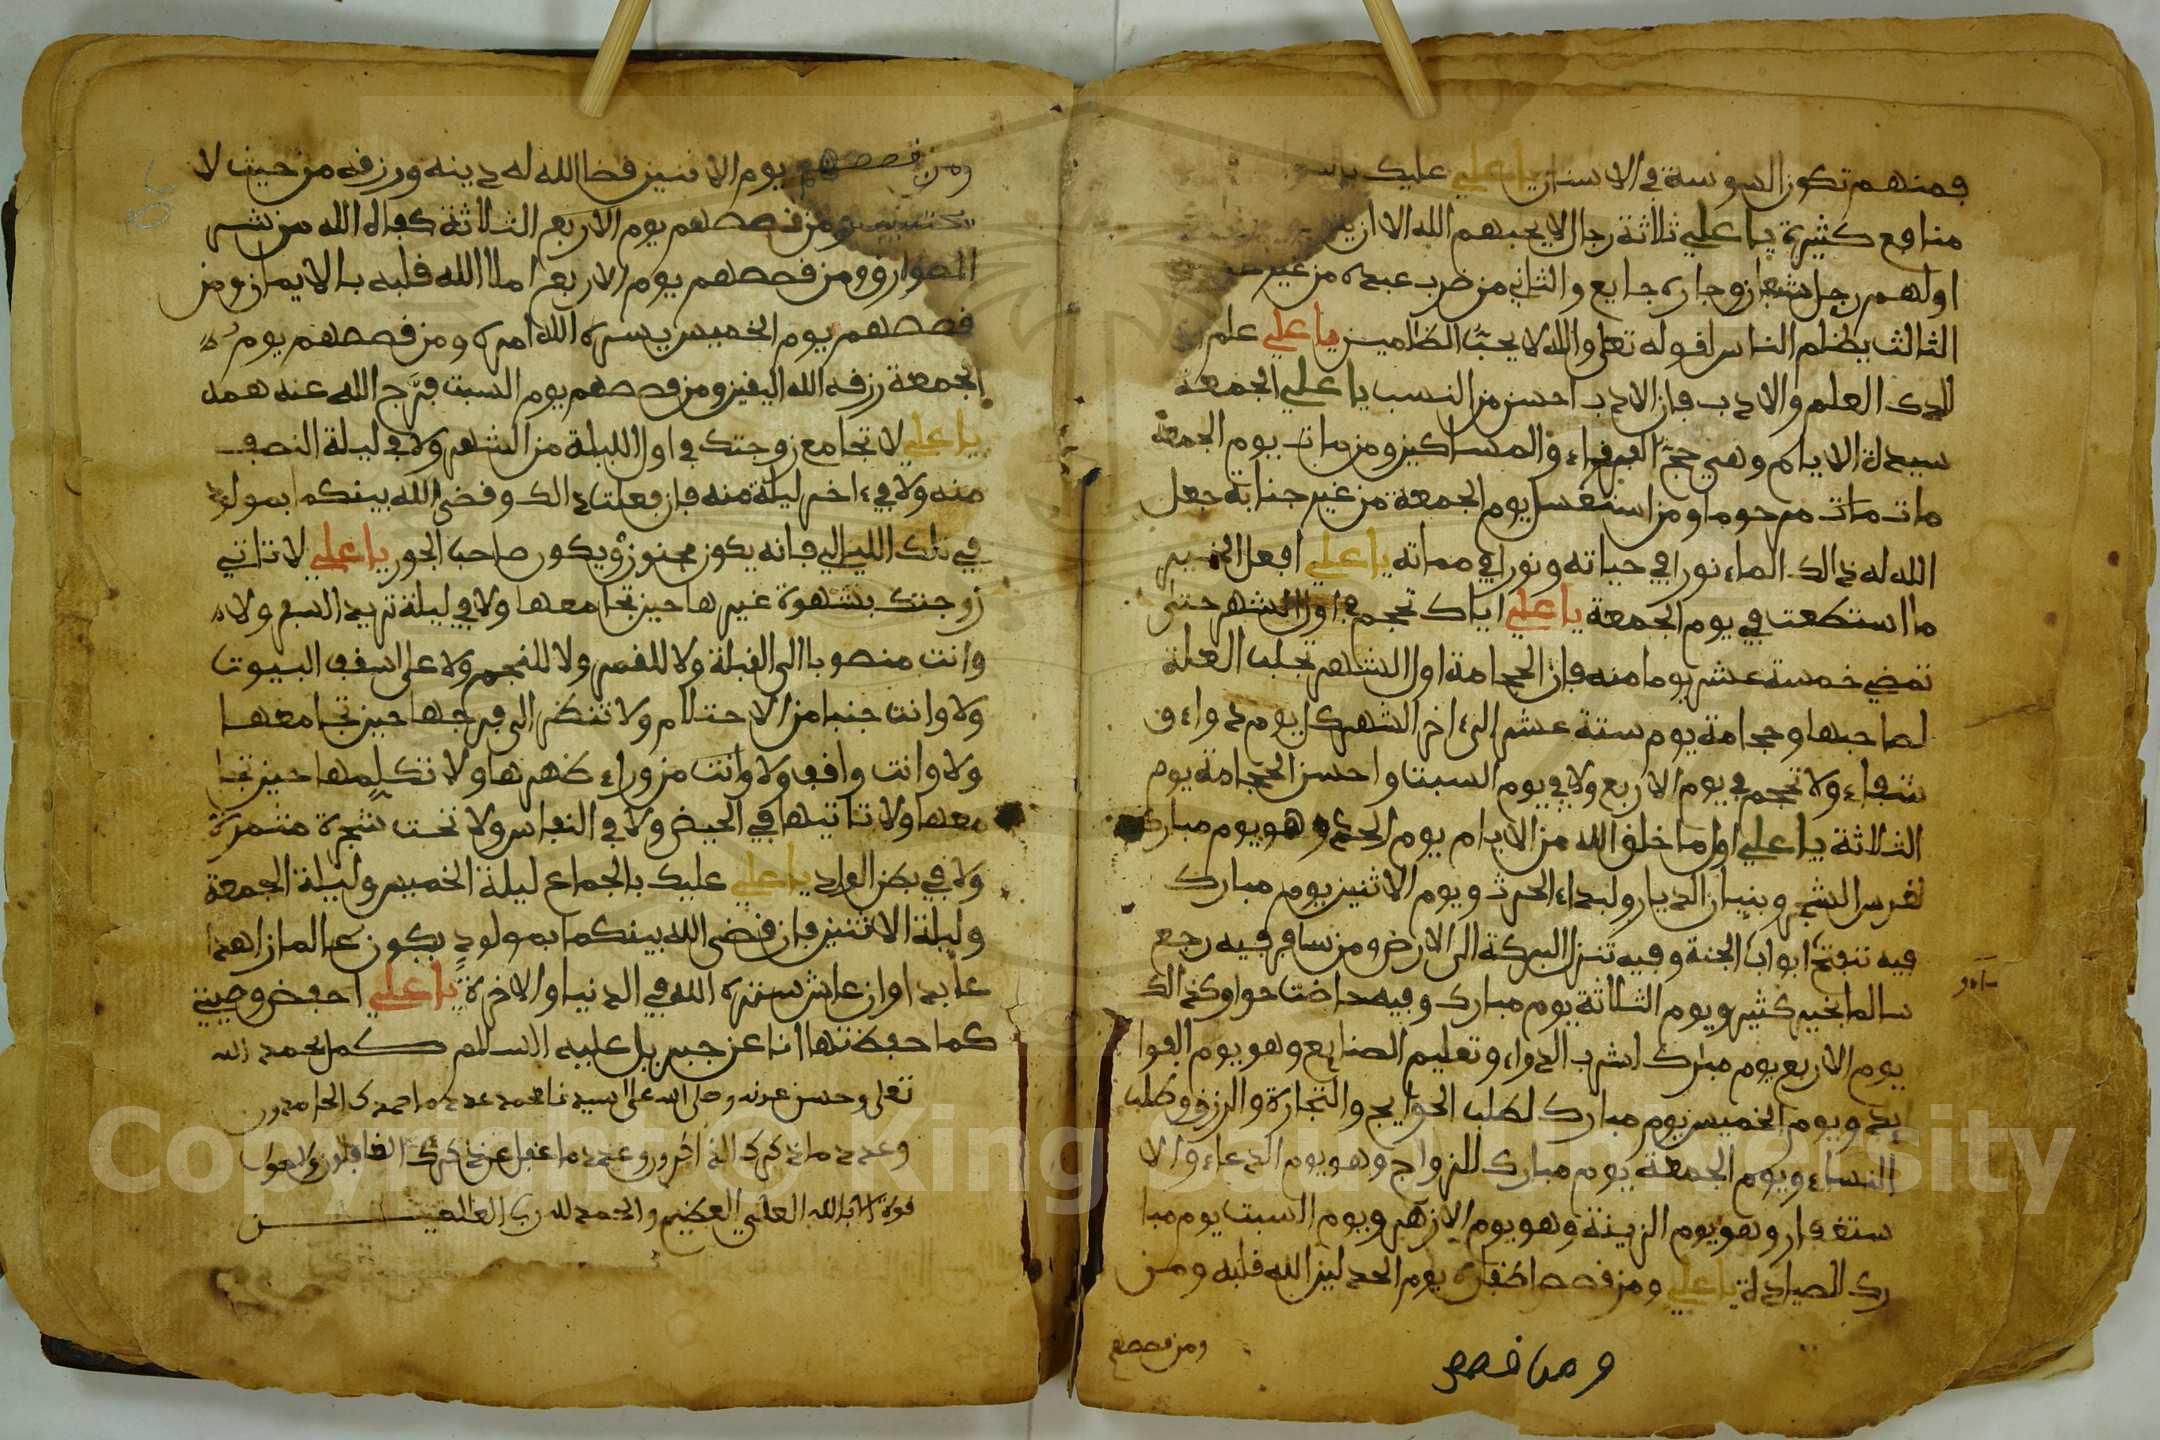 فمنهم تكون السوسة في الاسنان يا علي عليك
منافع كثيرة يا علي ثلاثة رجال لا يحبهم الله الا ان
اولهم رجل شبعان وجاره جايع والثاني من ضرب عبده من غير
الثالث يظلم الناس لقوله تعلى والله لا يحب الظلمين يا علي علم
الدك العلم والادب فان الادب احسن من النسب يا علي الجمعة
سيدة الايام وهي حج الفقراء والمساكين ومن مات يوم الجمعة
مات مات مرحوما ومن استغسل يوم الجمعة من غير جنابة جعل
الله له ذالك الماء نورا في حياته ونورا في مماته يا علي افعل الخير
ما استطعت في يوم الجمعة يا علي اياك تحجم في اول الشهر حتى
تمضي خمسة عشر يوما منه فان الحجامة اول الشهر تجلب العلة
لصاحبها وحجامة يوم ستة عشر الى ءاخر الشهر كل يوم دواء و
شفاء ولا تحجم في يوم الاربع ولا في يوم السبت واحسن الحجامة يوم
الثلاثة يا علي اول ما خلق الله من الايام يوم الحد وهو يوم مبارك
لغرس الشجر وبنيان الديار ولبداء الحرث ويوم الاثنين يوم مبارك
فيه تفتح ابواب الجنة وفيه تنزل البركة الى الارض ومن سافر فيه رجع
سالما بخير كثير ويوم الثلاثة يوم مبارك وفيه حاضت حوا وكذالك
يوم الاربع يوم مبرك لشرب الدواء وتعليم الصنايع وهو يوم الفوا
يد ويوم الخميس يوم مبارك لطلب الحوايج والتجارة والرزق وطلب
النساء ويوم الجمعة يوم مبارك للزواج وهو يوم الدعاء والا
ستغفار وهو يوم الزينة وهو يوم الازهر ويوم السبت يوم مبا
رك للصيادة يا علي ومن قصص اظفاره يوم الحد لين الله قلبه ومن
ومن قصصهم
ومن قصصهم يوم الاثنين قضا الله له دينه ورزقه من حيث لا
يحتسب ومن قصصهم يوم الاربع الثلاثة كفاه الله من شر
الطوارق ومن قصصهم يوم الاربع املا الله قلبه بالايمان ومن
قصصهم يوم الخميس يسره الله امره ومن قصصهم يوم
الجمعة رزقه الله اليقين ومن قصصهم يوم السبت فرج الله عنه همه
يا علي لا تجامع زوجتك في اول الليلة من الشهر ولا في ليلة النصف
منه ولا في ءاخر ليلة منه فان فعلت ذالك وقضى الله بينكما بمولود
في تلك الليالي فانه يكون مجنون ويكون صاحب الجور يا علي لا تاتي
زوجتك بشهوة غيرها حين تجامعها ولا في ليلة تريد السفر ولا
وانت منصوبا الى القبلة ولا للقمر ولا للنجم ولا على اسقف البيوت
ولا وانت جنبا من الاحتلام ولا تنظر الى فرجها حين تجامعها
ولا وانت واقف ولا وانت من وراء ظهرها ولا تكلمها حين تجا
معها ولا تاتيها في الحيض ولا في النفاس ولا تحت شجرة مثمرة
ولا في بطن الواد يا علي عليك بالجماع ليلة الخميس وليلة الجمعة
وليلة الاثنين فان قضى الله بينكما بمولود يكون عالما زاهدا
عابدا وان عاش ستره الله في الدنيا والاخرة يا علي احفظ وصيتي
كما حفظتها انا عن جبريل عليه السلام كمل بحمد الله
تعلى وحسن عونه وصلى الله على سيدنا محمد عدد ما حمدك الحامدون
وعدد ما ذكرك الذاكرون وعدد ما غفل عن ذكرك الغافلون ولا حول
قوة الا بالله العلي العظيم والحمد لله رب العالمين
Copyright © King Saud University